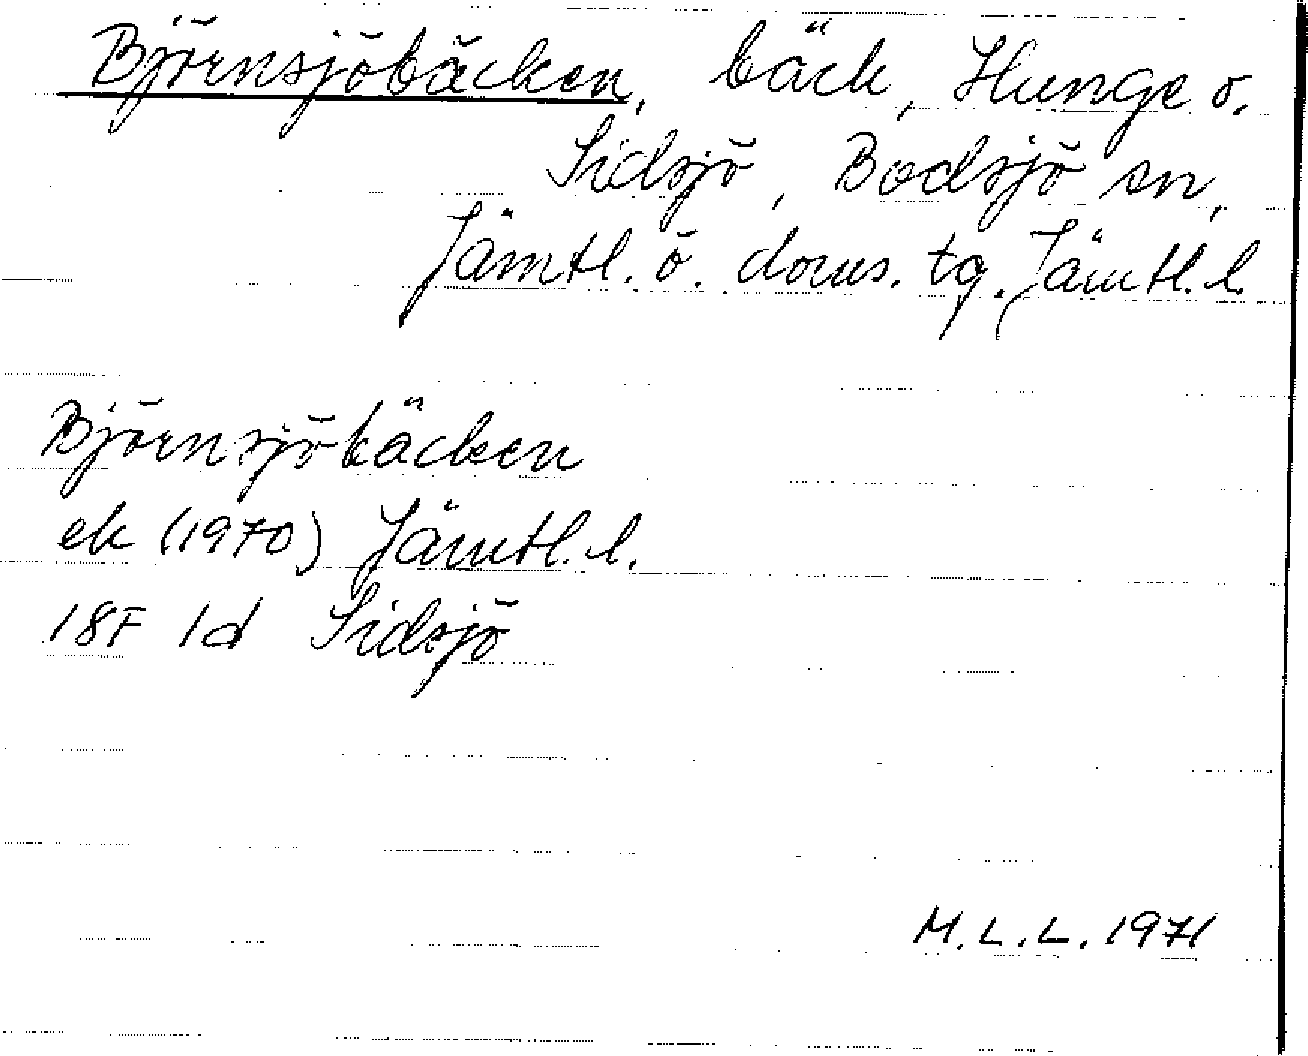 Björnsjöbäcken, bäck, Hunge o.
Sidsjö, Bodsjö sn,
Jämtl. ö. doms. tg. Jämtl. l.
Björnsjöbäcken
ek (1970) Jämtl. l.
18F 1d Sidsjö
M.L.L. 1971